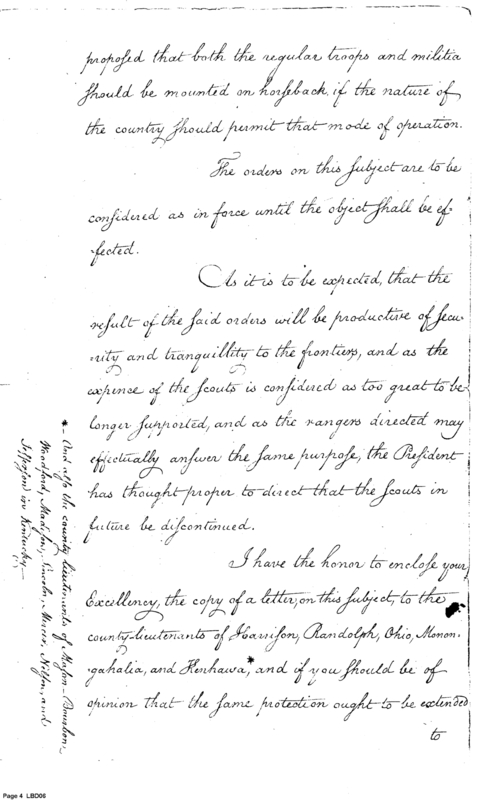 proposed that both the regular troops and militia
should be mounted on horseback, if the nature of
the country should permit that mode of operation.
The orders on this subject are to be
considered as in force until the object shall be ef-
fected.
As it is to be expected, that the
result of the said orders will be productive of secu-
rity and tranquillity to the frontiers, and as the
expence of the Scouts is considered as too great to be
longer supported, and as the rangers directed may
effectually answer the same purpose, the President
has thought proper to direct that the Scouts in
future be discontinued.
I have the honor to enclose your
Excellency, the copy of a letter, on this subject, to the
county-lieutenants of Harrison, Randolph, Ohio, Monon-
gahalia, and Kenhawa,* and if you should be of
opinion that the same protection ought to be extended
to
*- And also the county lieutenants of Mason- Bourbon-
Woodford, Madison, Lincoln, Mercer, Nelson, and
Jefferson in Kentucky-
Page 4 LBD06